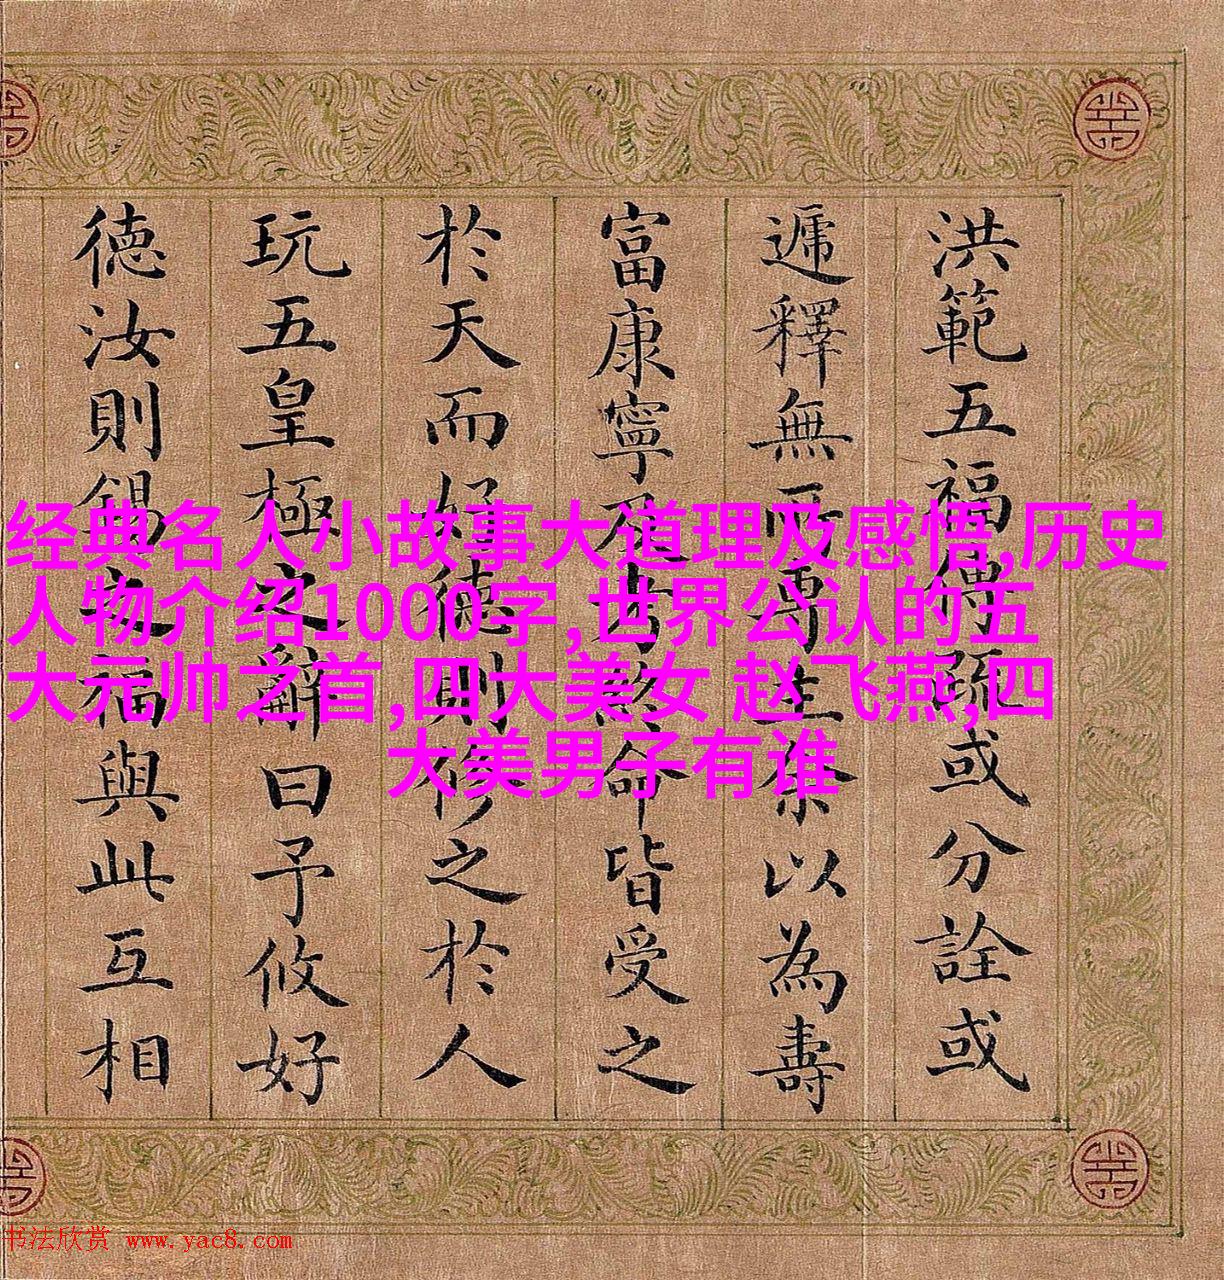 洪範五福傳疏或分詮或
遞釋無所專主余以為壽
富康寧及考終命皆受之
於天而好德則修之於人
玩五皇極之辭曰予攸好
德汝則錫之福與此互相
经典名人小故事大道理及感悟,历史
人物介绍1000字,世界公认的五
大元帅之首,四大美女 赵飞燕,四
大美男子有谁
书法欣赏 www.yac8.com